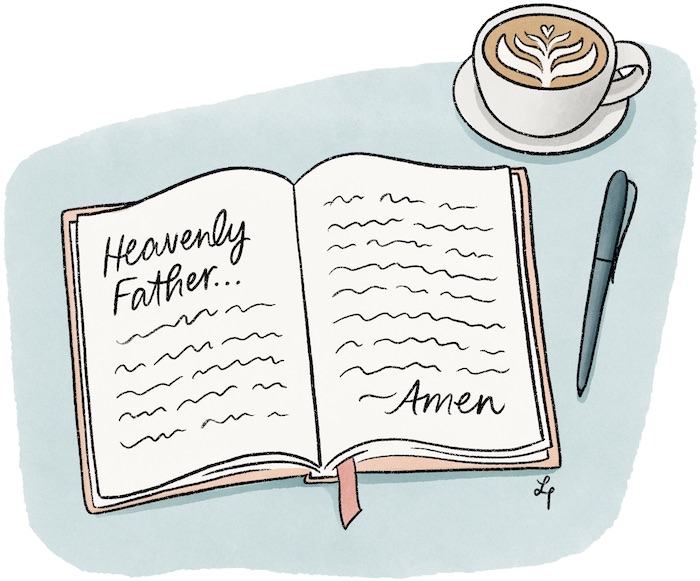 Heavenly
Father...
~Amen